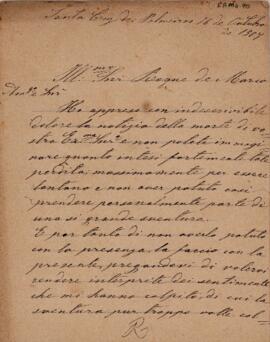 Santa Cruz das Palmeiras 16 de Outubro
de 1907
Ill.mo Snr Roque de Marco
Ho appreso con indescrivibile
dolore la notizia della morte di vo-
stra Ex.ma e non potete immagi-
nare quanto intesi fortemente tale
perdita, massimamente per essere
lontano e non aver potuto così
prendere personalmente parte
di una sì grande sventura.
E per tanto di non averlo potuto
con la presenza, la faccio con la
presente, pregandovi di volervi
rendere interprite dei sentimenti
che mi hanno colpito, di cui la
sventura pur troppo volle col-
R